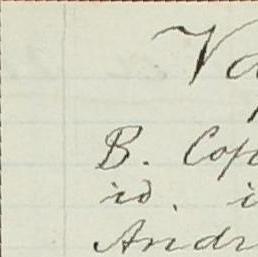 Va
B. Cop
id. i
Andr